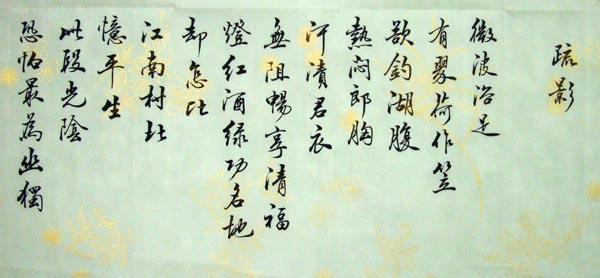 疏影
微波浴足
有翠荷作笠
欲釣湖腹
熱闷郎胸
汗漬君衣
無阻暢享清福
燈紅酒緑功名地
却怎比
江南村北
憶平生
此段光陰
恐怕最為幽獨